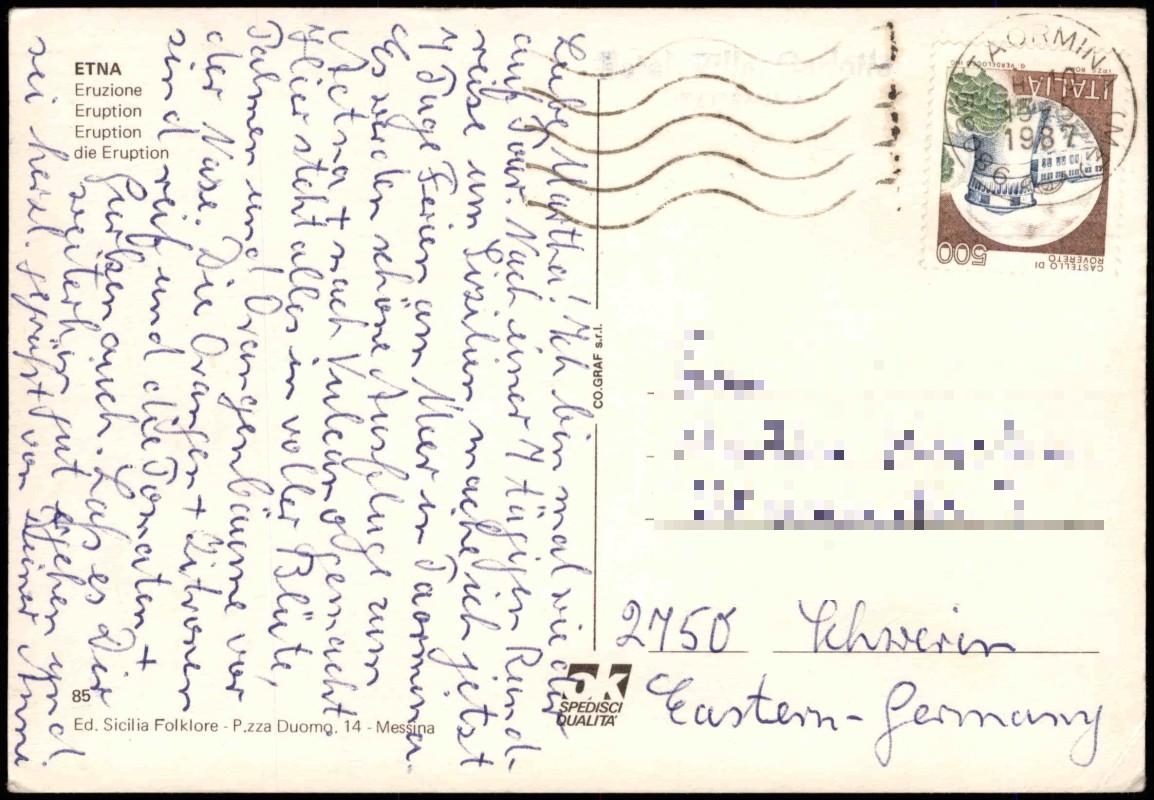 ETNA
Eruzione
Eruption
Eruption
die Eruption
Liebe Martha! Ich bin mal wieder
auf Tour. Nach einer 7 tägigen Rund-
reise um Sizilien mache ich jetzt
7 Tage Ferien am Meer in Taormina.
Es werden schöne Ausflüge zum
Aetna + nach Vulcano gemacht
Hier steht alles in voller Blüte,
Palmen und Orangenbäume vor
der Nase. Die Orangen + Zitronen
sind reif und die Tomaten +
Gurken auch. Laß es Dir
weiterhin gut gehen und
sei herzl. gegrüßt von Deiner Anni
85
Ed. Sicilia Folklore - P.zza Duomo, 14 - Messina
CO.GRAF s.r.l.
ok
SPEDISCI
QUALITA'
TAORMINA
1987
ITALIA
500
CASTELLO DI
ROVERETO
2750 Schwerin
Eastern-Germany